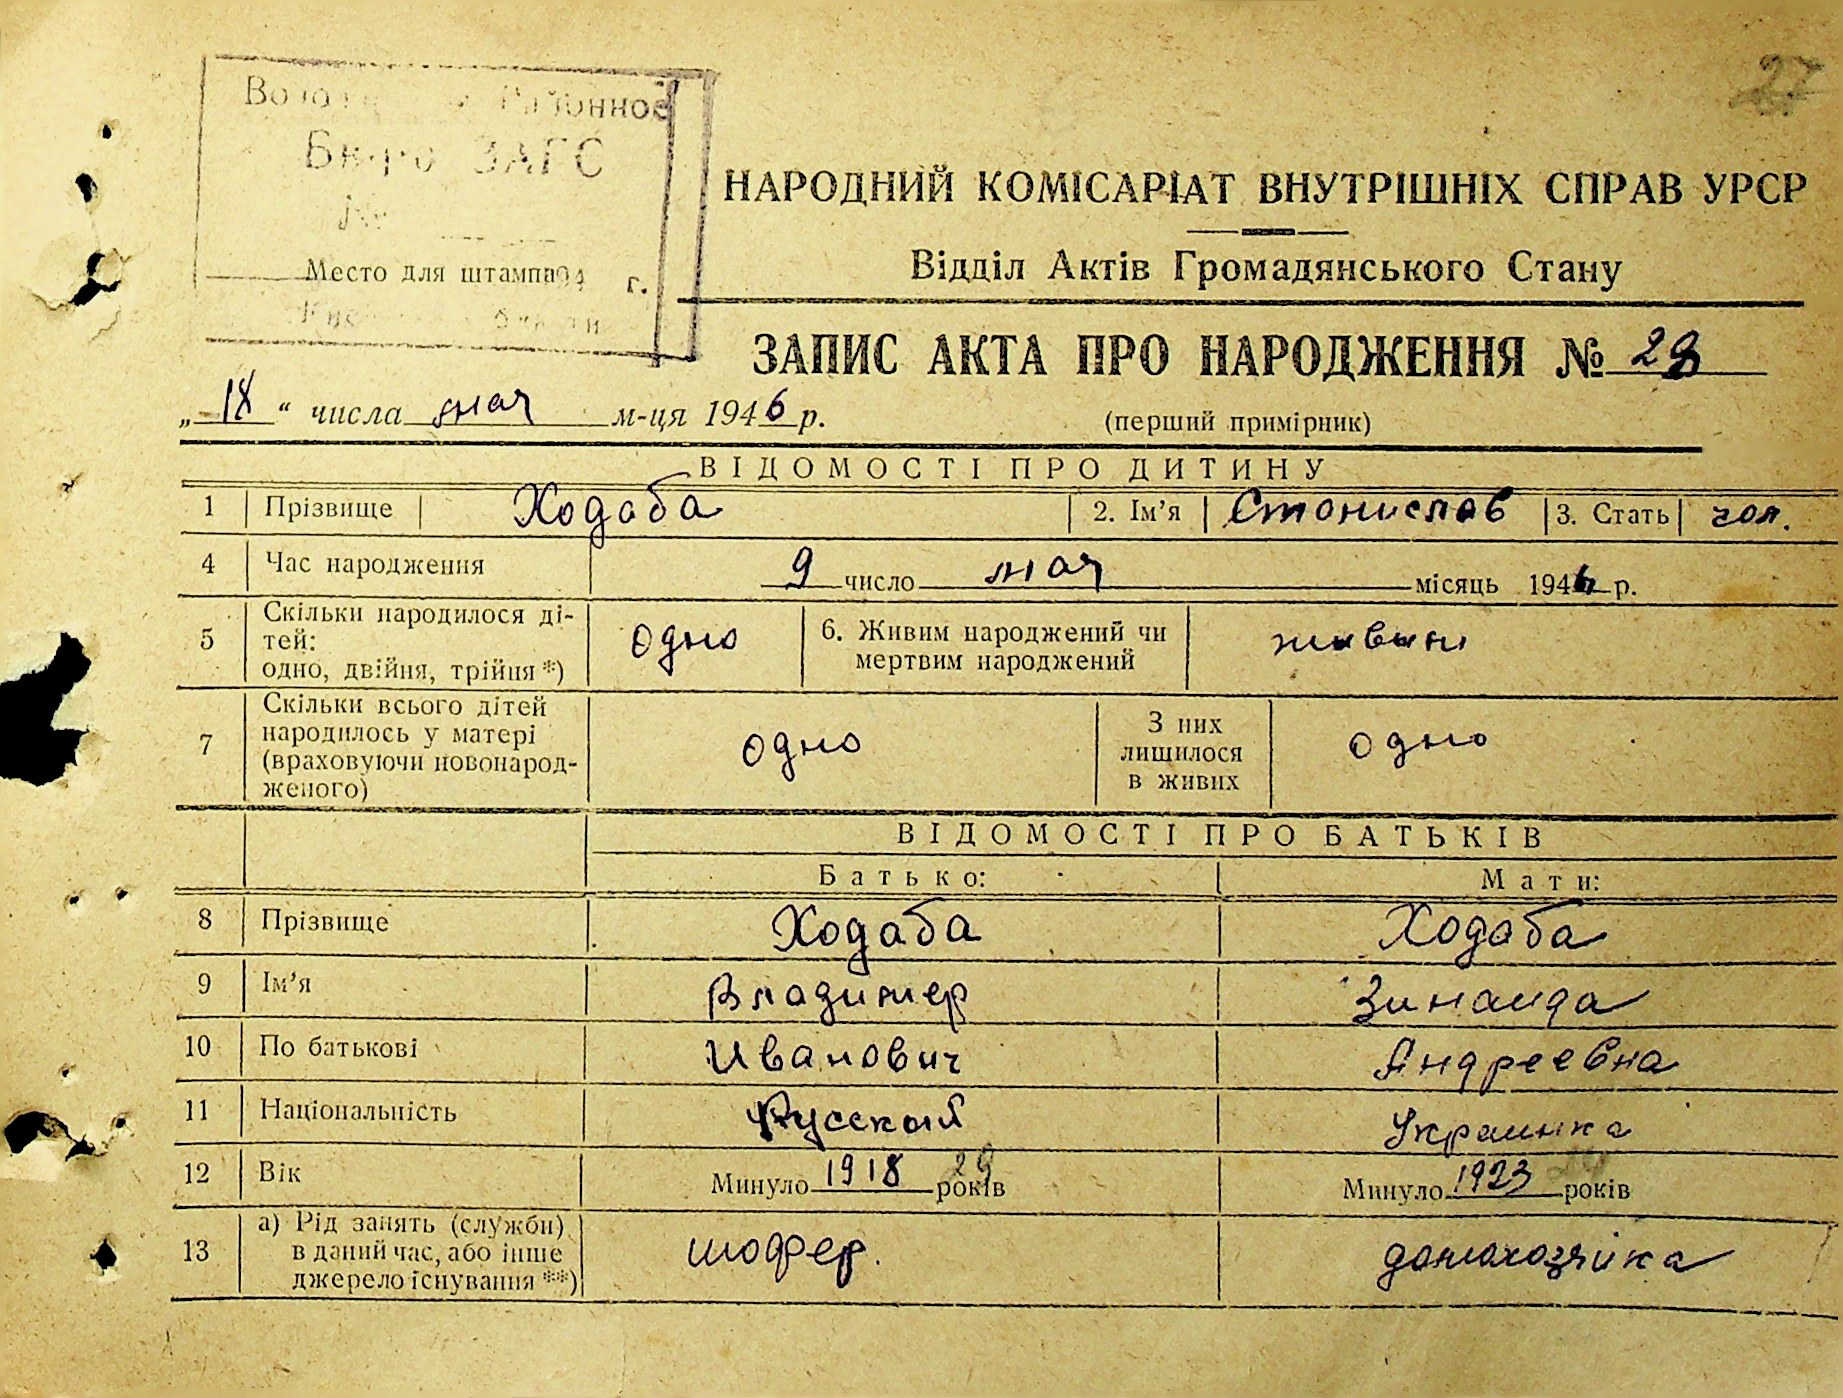 27
Районное
Бюро ЗАГС
№
Место для штампа 194 г.
НАРОДНИЙ КОМІСАРІАТ ВНУТРІШНІХ СПРАВ УРСР
Відділ Актів Громадянського Стану
ЗАПИС АКТА ПРО НАРОДЖЕННЯ № 28
„18“ числа мая м-ця 1946 р. (перший примірник)
ВІДОМОСТІ ПРО ДИТИНУ
1 Прізвище Ходаба 2. Ім'я Станислав 3. Стать чол.
4 Час народження 9 число мая місяць 1946 р.
5 Скільки народилося ді-
тей:
одно, двійня, трійня *) одно 6. Живим народжений чи
мертвим народжений живым
7 Скільки всього дітей
народилось у матері
(враховуючи новонарод-
женого) одно З них
лишилося
в живих одно
ВІДОМОСТІ ПРО БАТЬКІВ
Батько: Мати:
8 Прізвище Ходаба Ходаба
9 Ім'я Владимер Зинаида
10 По батькові Иванович Андреевна
11 Національність Русский Украинка
12 Вік Минуло 1918 29 років Минуло 1923 років
13 а) Рід занять (служби)
в даний час, або інше
джерело існування **) шофер. домохозяйка